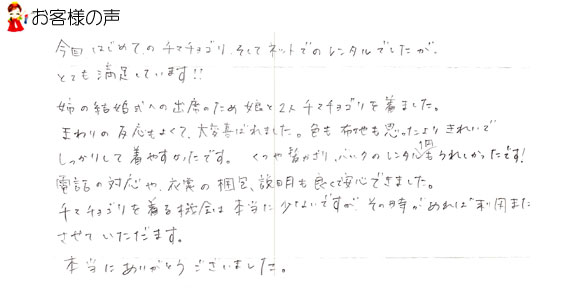 お客様の声
今回はじめてのチマチョゴリ、そしてネットでのレンタルでしたが、
とても満足しています!!
姉の結婚式への出席のため娘と2人チマチョゴリを着ました。
まわりの反応もよくて、大変喜ばれました。色も布地も思ったよりきれいで
しっかりして着やすかったです。くつや髪かざり、バックのレンタル1円もうれしかったです!
電話の対応や、衣裳の梱包、説明も良くて安心できました。
チマチョゴリを着る機会は本当に少ないですが、その時があれば利用また
させていただます。
本当にありがとうございました。